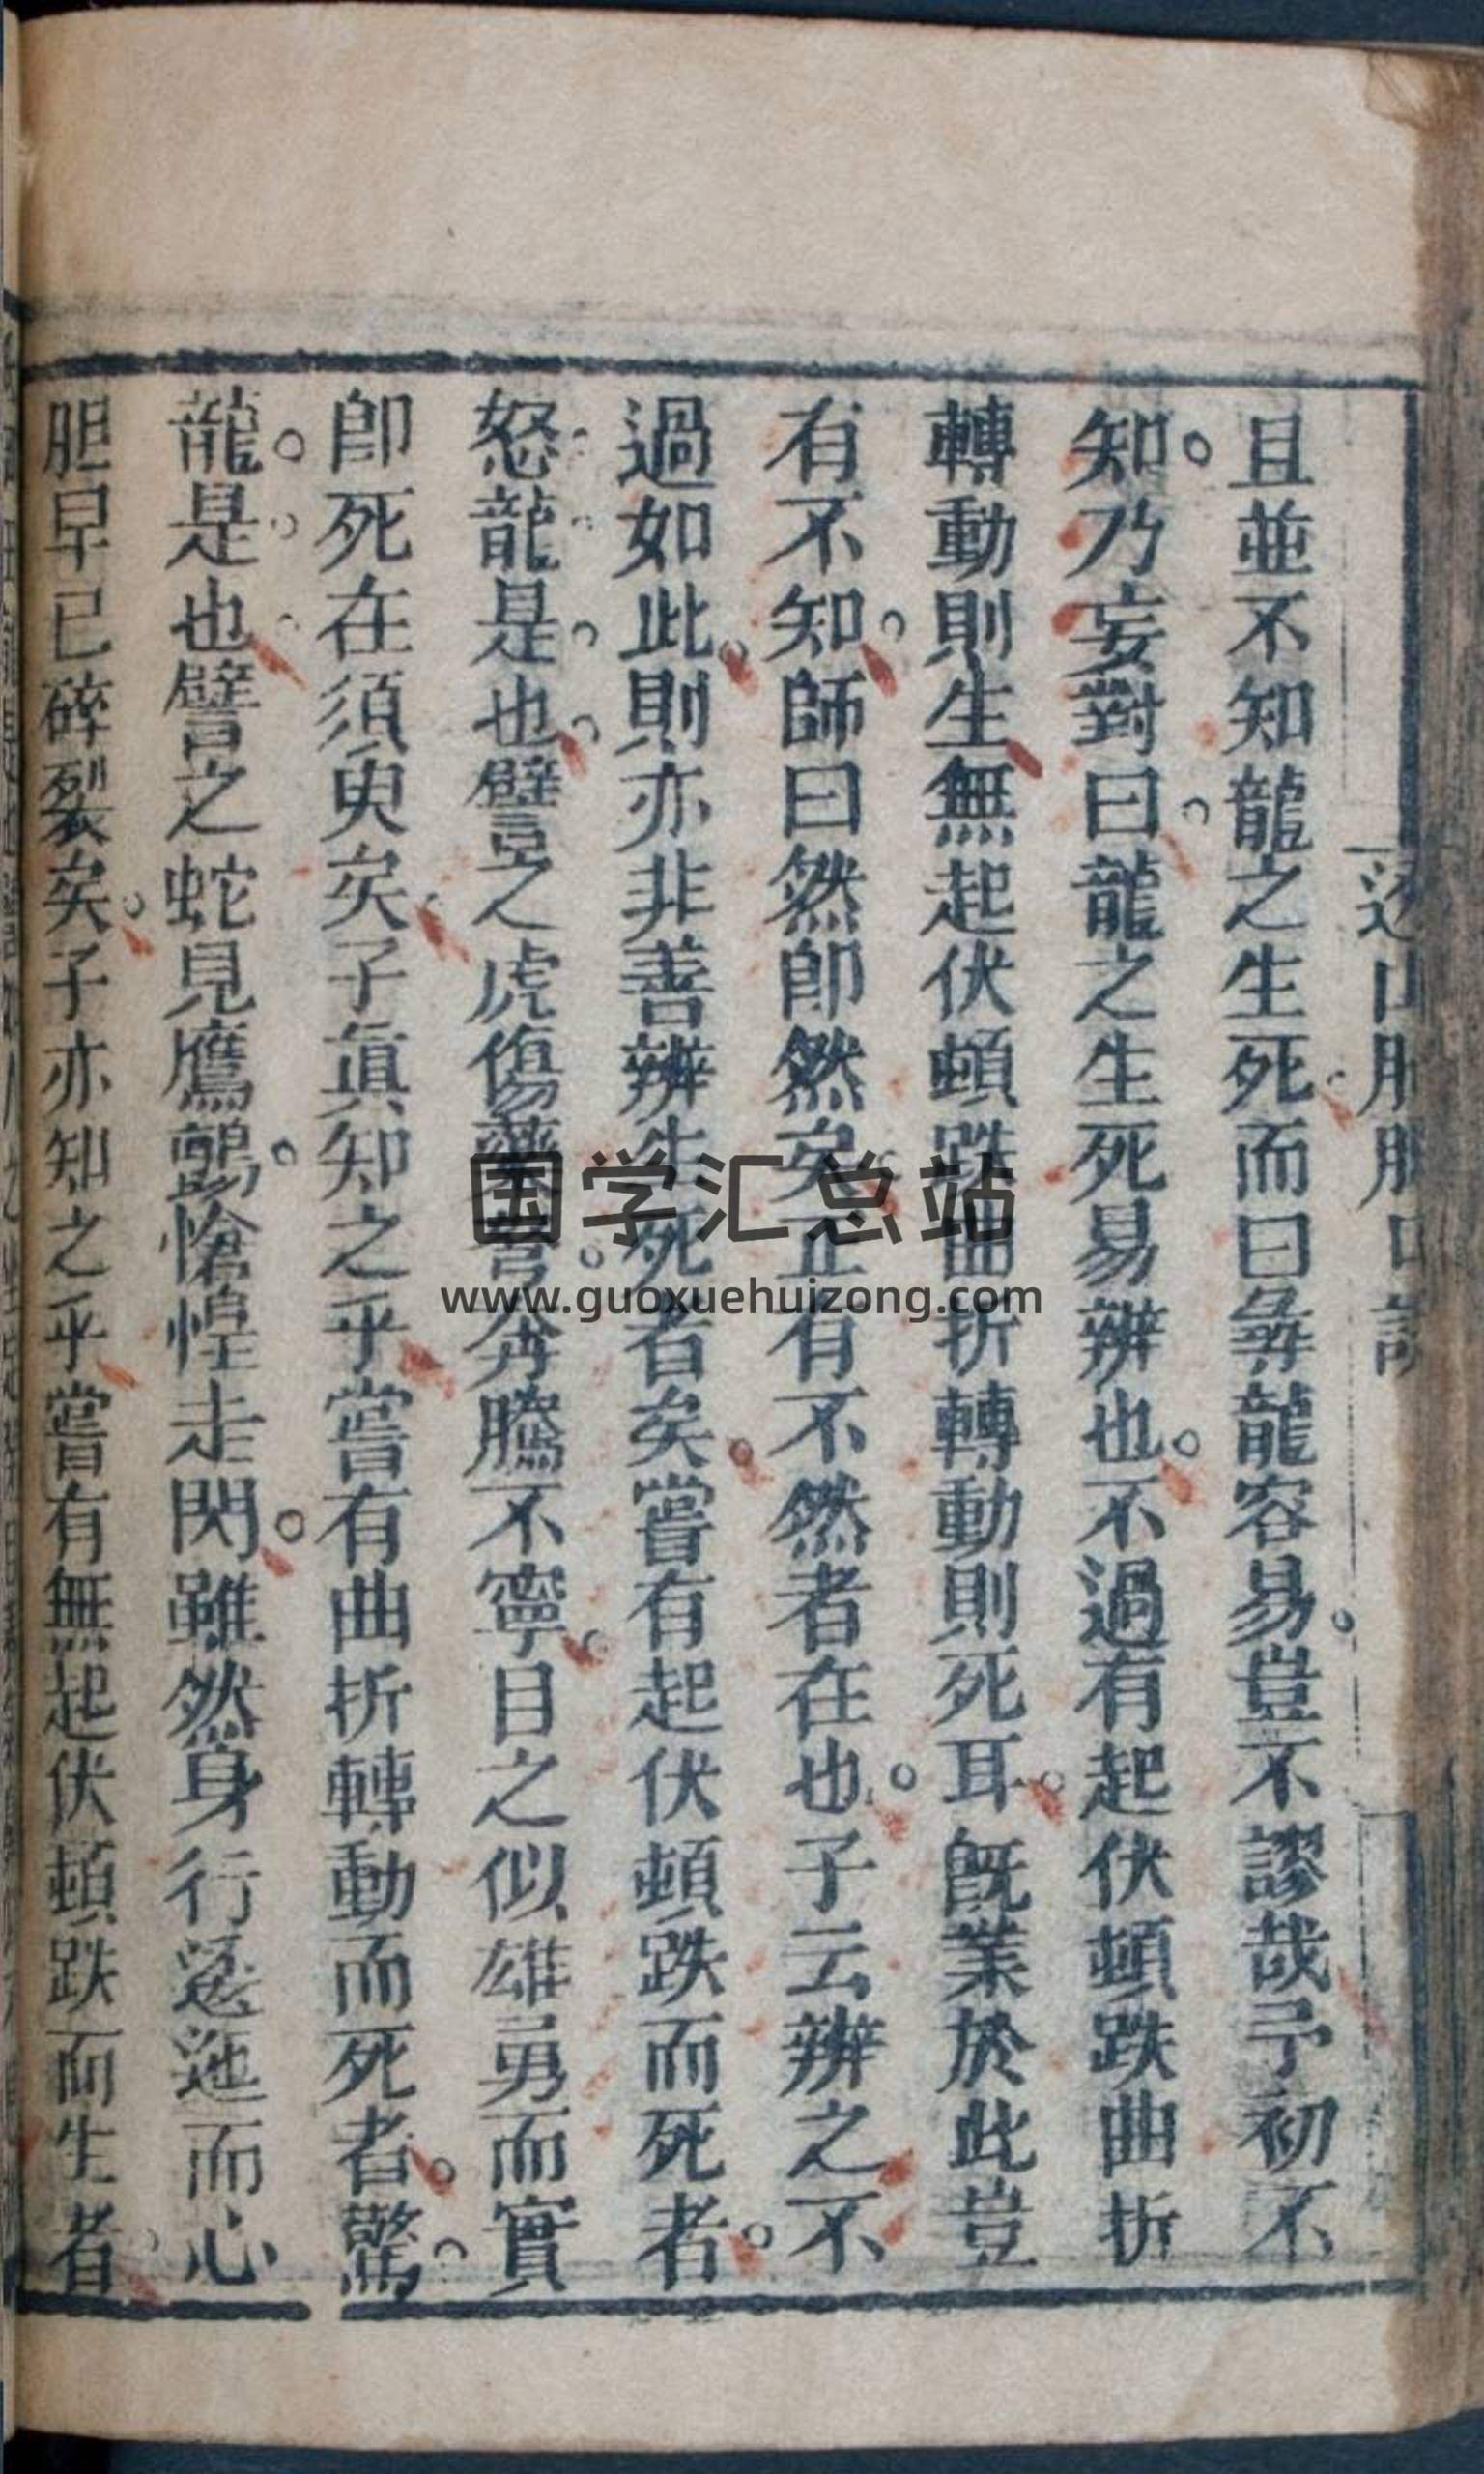 且並不知龍之生死而曰彝龍容易豈不謬哉予初不
知乃妄對曰龍之生死易辨也不過有起伏頓跌曲折
轉動則生無起伏頓跌曲折轉動則死耳旣業於此豈
有不知師曰然卽然矣正有不然者在也子云辨之不
過如此則亦非善辨生死者矣嘗有起伏頓跌而死者
怒龍是也譬之虎傷藥奔騰不寧目之似雄勇而實
卽死在須臾矣子眞知之乎嘗有曲折轉動而死者驚
龍是也譬之蛇見鷹鸇愴惶走閃雖然身行迤而心
胆早已碎裂矣子亦知之乎嘗有無起伏頓跌而生者
山口
国学汇总站
www.guoxuehuizong.com